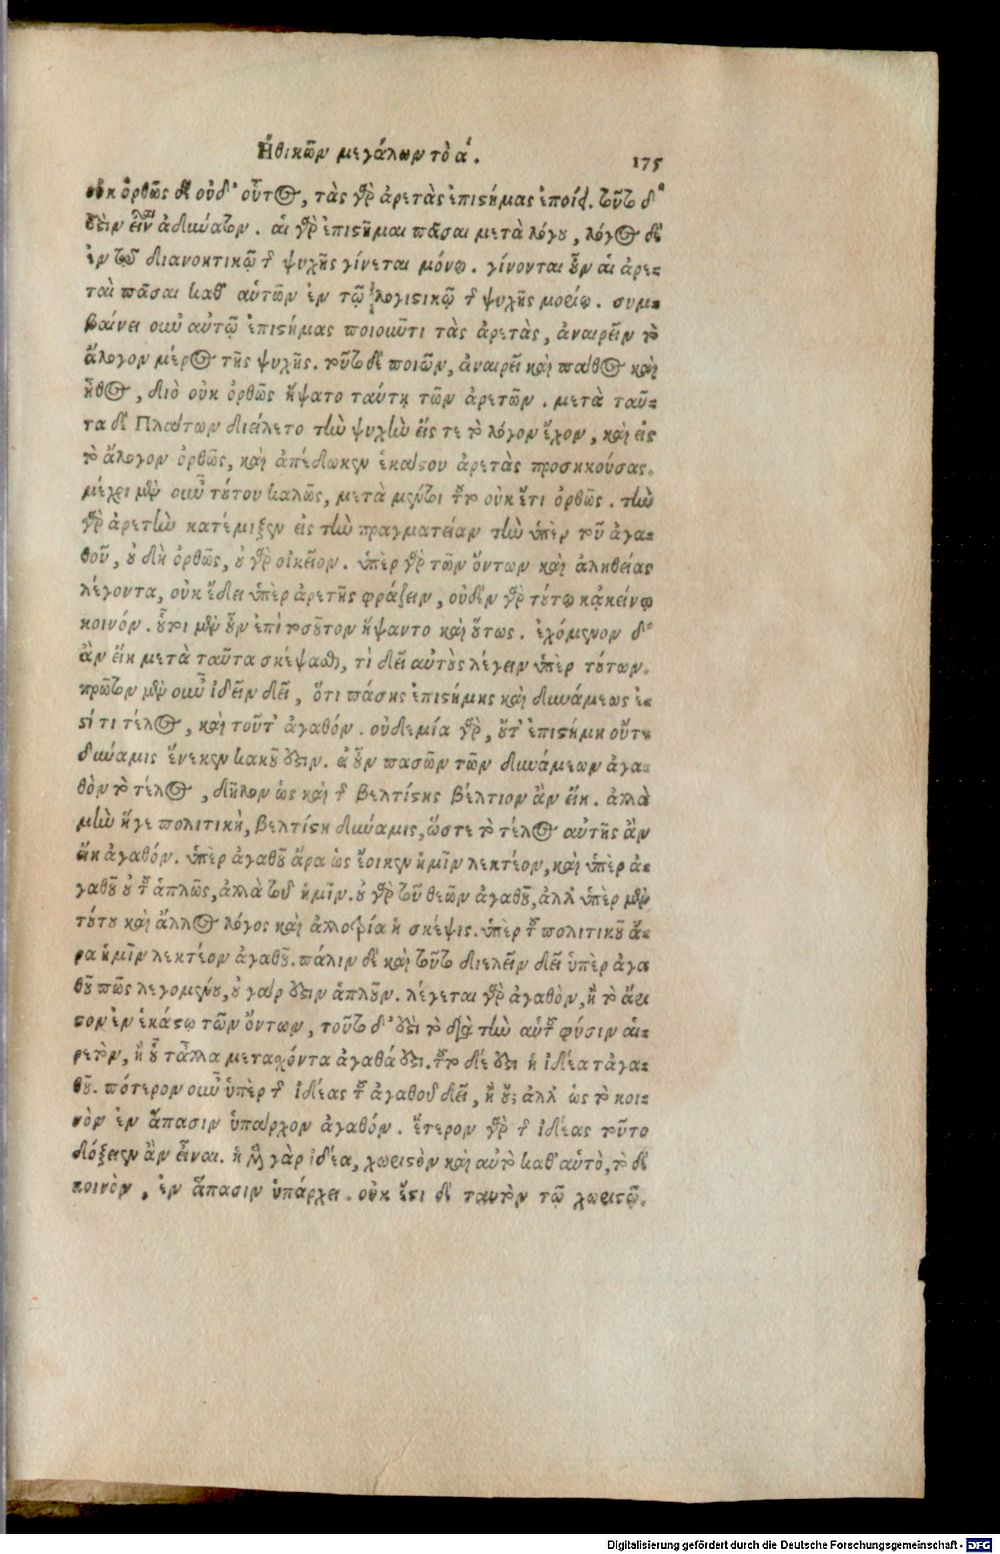 Ἠθικῶν μεγάλων τὸ ά.
175
οὐκ ὀρθῶς δὲ οὐδ' οὗτος, τὰς γὰρ ἀρετὰς ἐπιστήμας ἐποίει. τοῦτο δ'
ἐστὶν εἶναι ἀδύνατον. αἱ γὰρ ἐπιστῆμαι πᾶσαι μετὰ λόγου, λόγος δὲ
ἐν τῷ διανοητικῷ τῆς ψυχῆς γίνεται μόνῳ. γίνονται οὖν αἱ ἀρε-
ταὶ πᾶσαι καθ' αὑτῶν ἐν τῷ λογιστικῷ τῆς ψυχῆς μορίῳ. συμ-
βαίνει οὖν αὐτῷ ἐπιστήμας ποιοῦντι τὰς ἀρετὰς, ἀναιρεῖν τὸ
ἄλογον μέρος τῆς ψυχῆς. τοῦτο δὲ ποιῶν, ἀναιρεῖ καὶ πάθος καὶ
ἦθος, διὸ οὐκ ὀρθῶς ἥψατο ταύτῃ τῶν ἀρετῶν. μετὰ ταῦ-
τα δὲ Πλάτων διείλετο τὴν ψυχὴν εἴς τε τὸ λόγον ἔχον, καὶ εἰς
τὸ ἄλογον ὀρθῶς, καὶ ἀπέδωκεν ἑκάστου ἀρετὰς προσηκούσας.
μέχρι μὲν οὖν τούτου καλῶς, μετὰ μέντοι τοῦτο οὐκ ἔτι ὀρθῶς. τὴν
γὰρ ἀρετὴν κατέμιξεν εἰς τὴν πραγματείαν τὴν ὑπὲρ τοῦ ἀγα-
θοῦ, οὐ δὴ ὀρθῶς, οὐ γὰρ οἰκεῖον. ὑπὲρ γὰρ τῶν ὄντων καὶ ἀληθείας
λέγοντα, οὐκ ἔδει ὑπὲρ ἀρετῆς φράζειν, οὐδὲν γὰρ τούτῳ κἀκείνῳ
κοινόν. οὗτοι μὲν οὖν ἐπὶ τοσοῦτον ἥψαντο καὶ οὕτως. ἐχόμενον δ'
ἂν εἴη μετὰ ταῦτα σκέψασθαι, τὶ δεῖ αὐτοὺς λέγειν ὑπὲρ τούτων.
πρῶτον μὲν οὖν ἰδεῖν δεῖ, ὅτι πάσης ἐπιστήμης καὶ δυνάμεως ἐ-
στί τι τέλος, καὶ τοῦτ' ἀγαθόν. οὐδεμία γὰρ, οὔτ' ἐπιστήμη οὔτε
δύναμις ἕνεκεν κακοῦ ἐστιν. εἰ οὖν πασῶν τῶν δυνάμεων ἀγα-
θὸν τὸ τέλος, δῆλον ὡς καὶ τῆς βελτίστης βέλτιον ἂν εἴη. ἀλλὰ
μὴν ἥγε πολιτικὴ, βελτίστη δύναμις, ὥστε τὸ τέλος αὐτῆς ἂν
εἴη ἀγαθόν. ὑπὲρ ἀγαθοῦ ἄρα ὡς ἔοικεν ἡμῖν λεκτέον, καὶ ὑπὲρ ἀ-
γαθοῦ οὐ τοῦ ἁπλῶς, ἀλλὰ τοῦ ἡμῖν. οὐ γὰρ τοῦ θεῶν ἀγαθοῦ, ἀλλ' ὑπὲρ μὲν
τούτου καὶ ἄλλος λόγος καὶ ἀλλοτρία ἡ σκέψις. ὑπὲρ τοῦ πολιτικοῦ ἄ-
ρα ἡμῖν λεκτέον ἀγαθοῦ. πάλιν δὲ καὶ τοῦτο διελεῖν δεῖ ὑπὲρ ἀγα
θοῦ πῶς λεγομένου, οὐ γάρ ἐστιν ἁπλοῦν. λέγεται γὰρ ἀγαθὸν, ἢ τὸ ἄρι
στον ἐν ἑκάστῳ τῶν ὄντων, τοῦτο δ' ἐστὶ τὸ διὰ τὴν αὑτοῦ φύσιν αἱ-
ρετὸν, ἢ οὗ τἆλλα μετασχόντα ἀγαθά ἐστι. τοῦτο δέ ἐστι ἡ ἰδέα τἀγα-
θοῦ. πότερον οὖν ὑπὲρ τῆς ἰδέας τοῦ ἀγαθοῦ δεῖ, ἢ οὔ; ἀλλ' ὡς τὸ κοι-
νὸν ἐν ἅπασιν ὑπάρχον ἀγαθόν. ἕτερον γὰρ τῆς ἰδέας τοῦτο
δόξειεν ἂν εἶναι. ἡ μὲν γὰρ ἰδέα, χωριστὸν καὶ αὐτὸ καθ' αὑτὸ, τὸ δὲ
κοινὸν, ἐν ἅπασιν ὑπάρχει. οὐκ ἔστι δὲ ταυτὸν τῷ χωριστῷ.
Digitalisierung gefördert durch die Deutsche Forschungsgemeinschaft - DFG